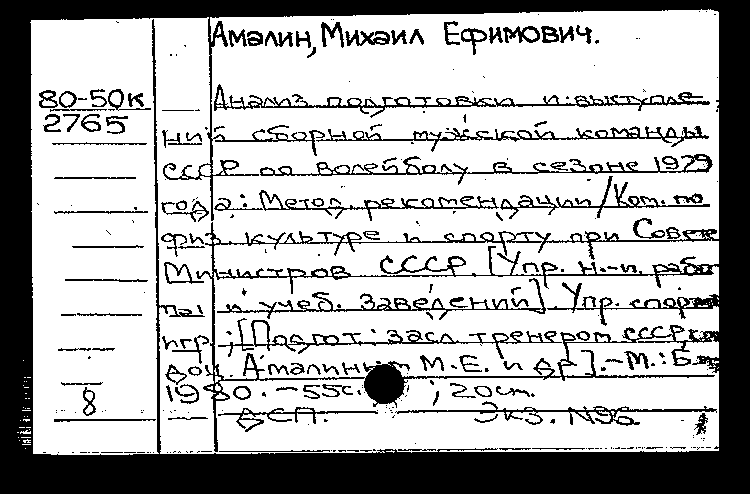 Амалин, Михаил Ефимович.
80-50к Анализ подготовки и выступле-
2765 ний сборной мужской команды
СССР по волейболу в сезоне 1979
года: Метод. рекомендации/Ком. по
физ. культуре и спорту при Совете
Министров СССР. [Упр. н.-и. работ
ты и учеб. заведений]. Упр. спорт
игр.; [Подгот.: засл. тренером СССР,
доц. Амалиным М.Е. и др].-М.: Б.
8 1980. -55с. ; 20см.
ДСП. Экз. N96.